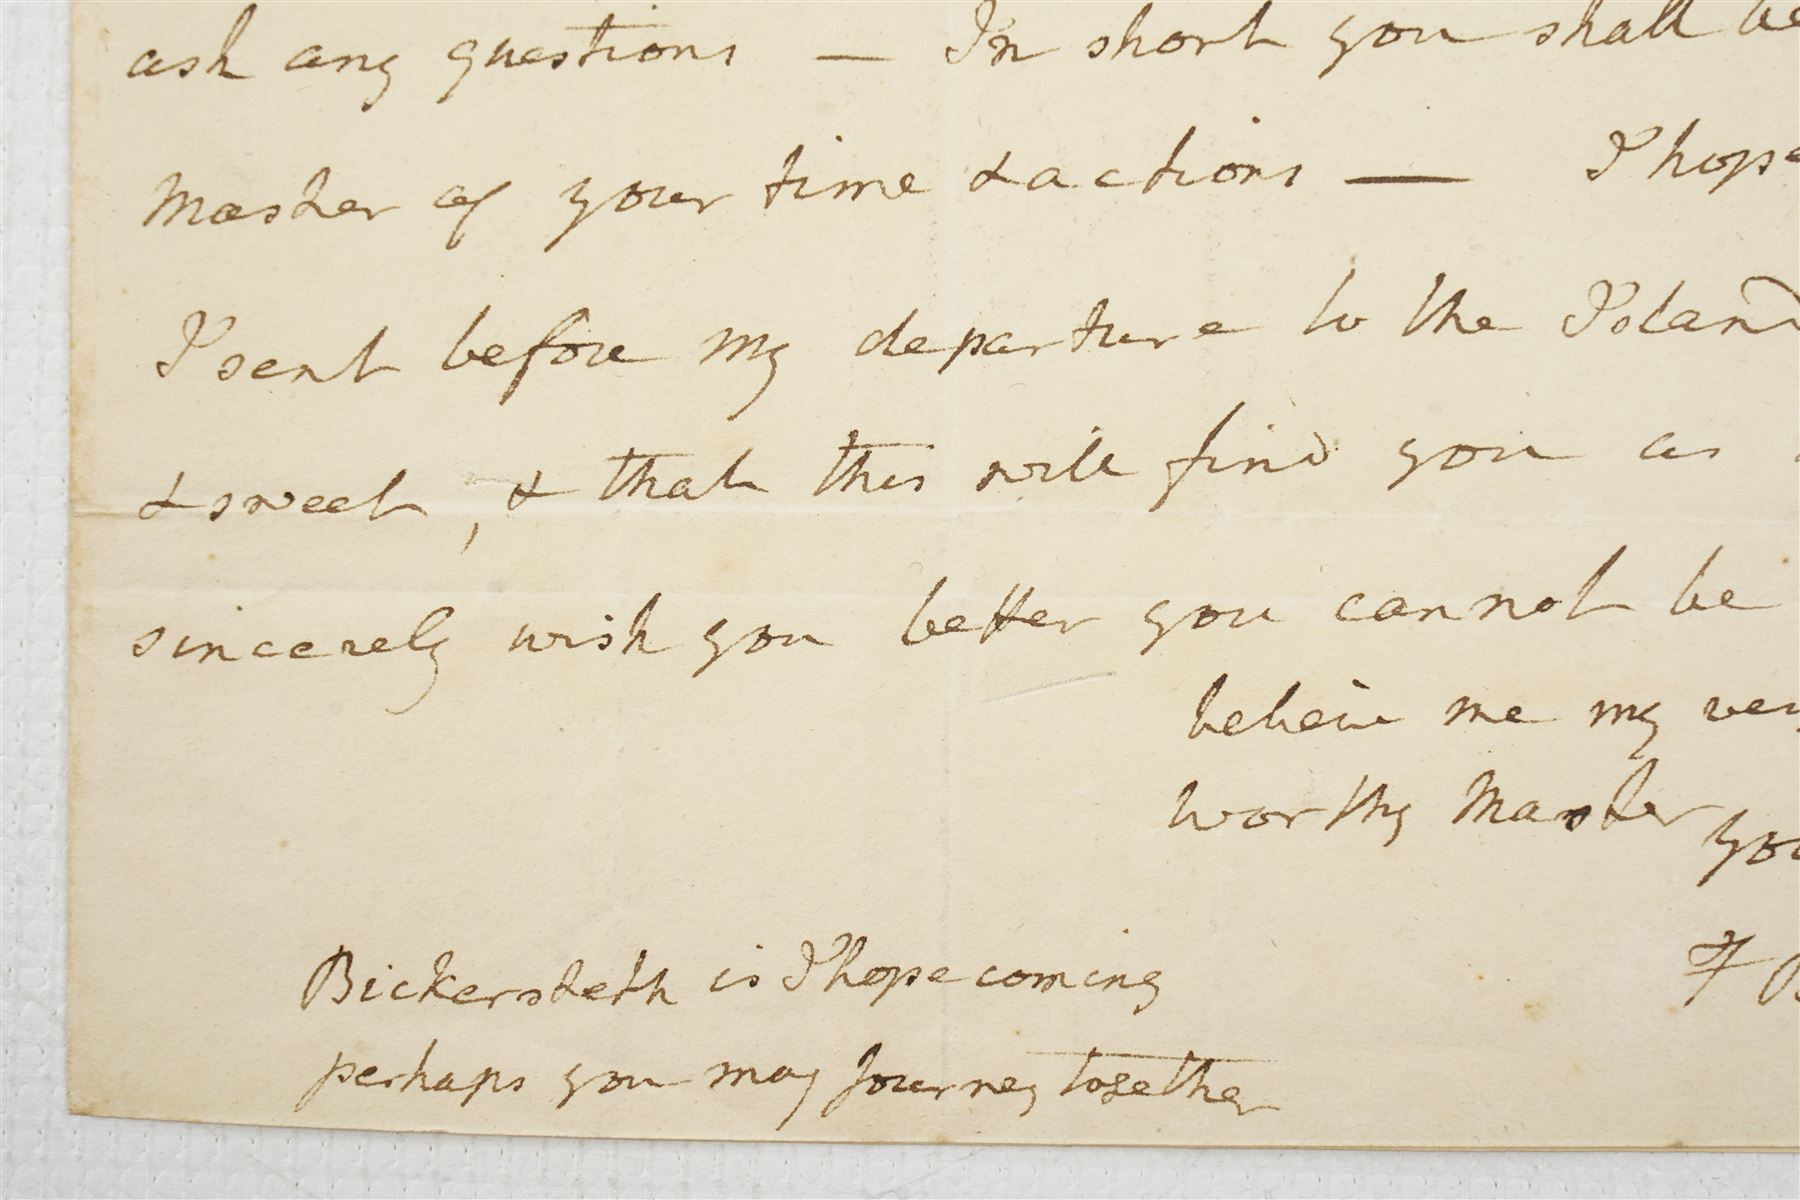 ask any questions — In short you shall be
Master of your time & actions — I hope
I sent before my departure to the Island
& sweet, & that this will find you as
sincerely wish you better you cannot be
beleive me my very
worthy Master
Bickersteth is I hope coming
perhaps you may journey together